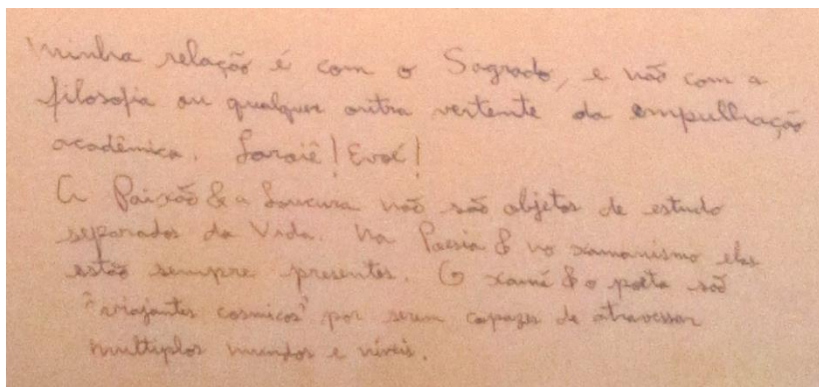 Minha relação é com o Sagrado, e não com a
filosofia ou qualquer outra vertente da empulhação
acadêmica. Laroiê! Evoé!
A Paixão & a Loucura não são objetos de estudo
separados da Vida. Na Poesia & no xamanismo elas
estão sempre presentes. O xamã & o poeta são
"viajantes cosmicos" por serem capazes de atravessar
multiplos mundos e níveis.